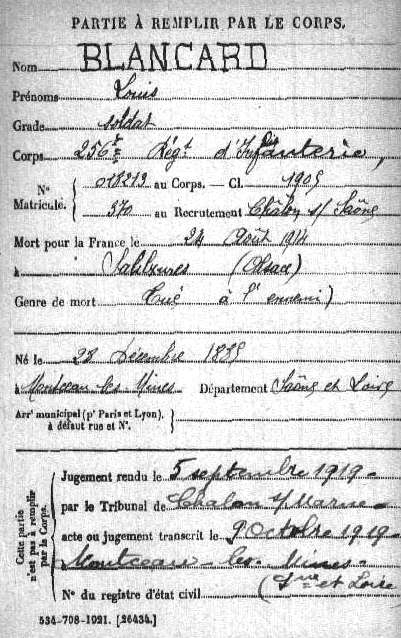 PARTIE À REMPLIR PAR LE CORPS.
Nom BLANCARD
Prénoms Louis
Grade soldat
Corps 256e Régt d'Infanterie,
N° Matricule. { 018219 au Corps. — Cl. 1905
370 au Recrutement Châlon s/ Saône
Mort pour la France le 24 Août 1914
à (Alsace)
Genre de mort Tué à l'ennemi)
Né le 28 Décembre 1885
à Montceau-les-Mines Département Saône et Loire
Arrt municipal (pr Paris et Lyon), à défaut rue et N°. {
Cette partie n'est pas à remplir par le Corps.
Jugement rendu le 5 septembre 1919
par le Tribunal de Chalon s/ Marne
acte ou jugement transcrit le 9 Octobre 1919
Montceau-les-Mines
N° du registre d'état civil (Sne et Loire
534-708-1921. [26434.]